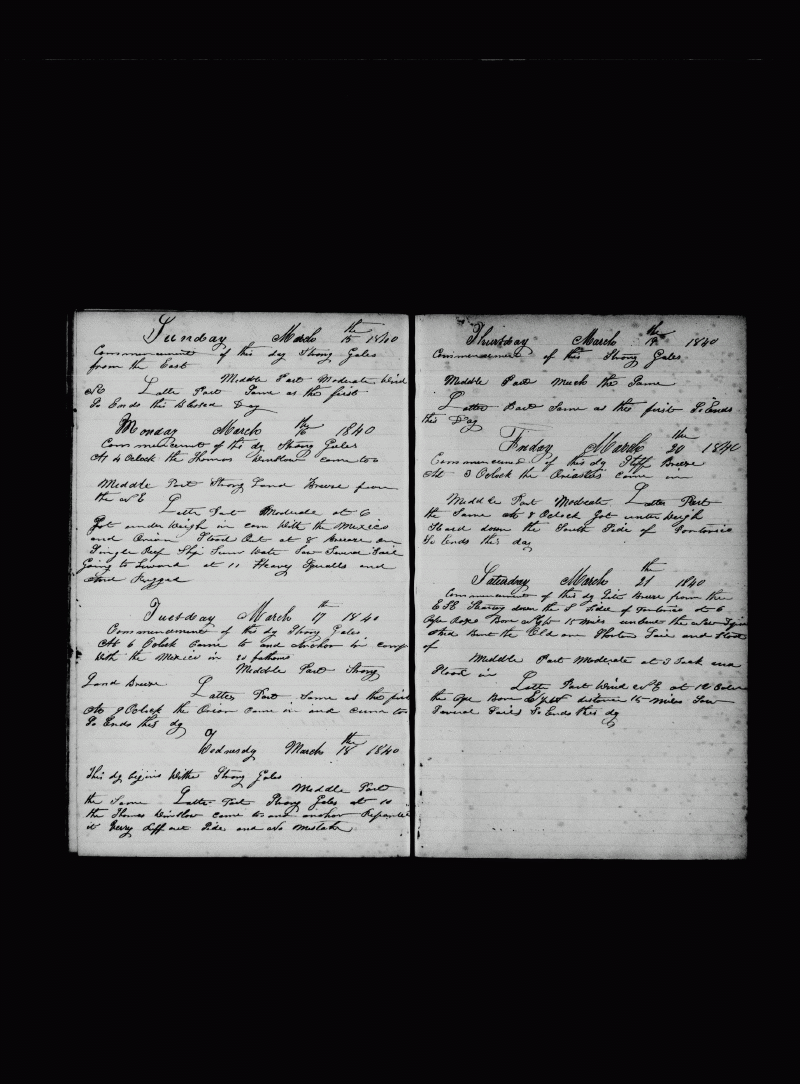 Sunday March 15th 1840
Commencement of this day Strong Gales
from the East
Middle Part Moderate Wind
NE Latter Part Same as the first
So Ends this Blessed Day
Monday March 16th 1840
Commencement of the dy Strong Gales
At 4 Oclock the Thomas Winslow came too
Middle Part Strong Land Breeze from
the NE Latter Part Moderate at 6
Got under Weigh in com With the Mexico
and Orion Stood Out at 8
Single Reef Ship Saw Several Sail
Going to Leward at 11 Heavy Squalls and
and Rugged
Tuesday March 17th 1840
Commencement of the dy Strong Gales
At 6 Oclock Came to and Anchor in comp
With the Mexico in 20 fathoms
Middle Part Strong
Land Breeze Latter Part Same as the first
At 9 Oclock the Orion Came in and came to
So Ends this dy
Wednesdy March 18th 1840
This dy begins Withe Strong Gales
Middle Part
the Same Latter Part Strong Gales at 10
the Thomas Winslow came to and anchor
it Very out Side and No Mistake
Thursday March 19th 1840
Commencement of this Strong Gales
Middle Part Much the Same
Latter Part Same as thee first So Ends
this Day
Friday March 20th 1840
Commencement of this dy Stiff Breeze
At 3 Oclock the came in
Middle Part Moderate Latter Part
the Same At 8 Oclock Got under Weigh
Steard down the South Side of
So Ends this day
Saturday March 21th 1840
Commencement of this dy Breeze from the
ESE Stearing down the S Side of at 6
Cape Bore 15 miles
and Stood
of
Middle Part Moderate at 3 Tack and
Stood in
Latter Part Wind NE at 12
the Cape Bore distance 15 miles Saw
Several Sails So Ends this dy